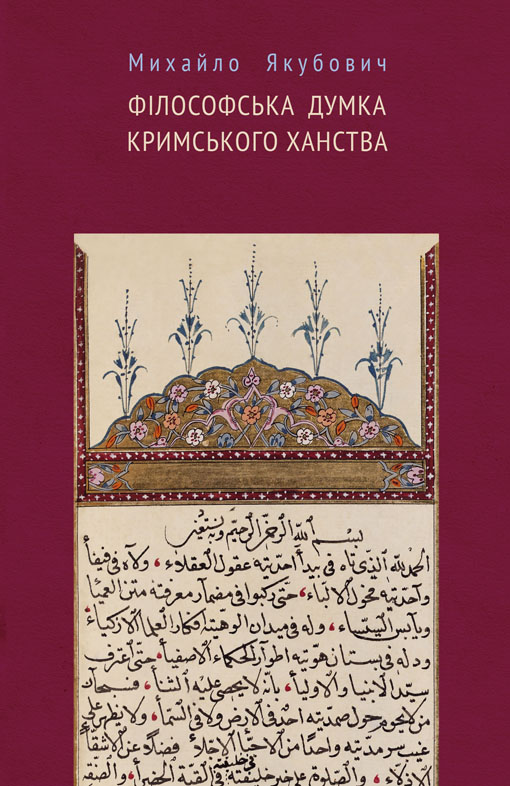 Михайло Якубович
ФІЛОСОФСЬКА ДУМКА
КРИМСЬКОГО ХАНСТВА
بسم الله الرحمن الرحيم وبه نستعين
الحمد لله الذي تاه في بيدآ احديته عقول العقلاء، ولآه في فيفآ
واحديته فحول الالبآء، حتى ركبوا في مضمار معرفته متن العميآ
وله في ميدان الوهيته افكار العلمآ الازكيآء
ودله في بستان هويته اطوار الحكمآء الاصفيآء، حتى اعترف
سيد الانبيآ والاوليآء، بانه لا يحصى عليه الثنآء، فسبحان
من لا يحوم حول صمديته احد في الارض ولا في السمآء، ولا يظهر على
غيب سرمديته واحدا من الاحبآ الاخلآء فضلا عن الاشقيآ
الاذلآء، والصلوة على خير خليقته في القبة الخضرآء والصفة